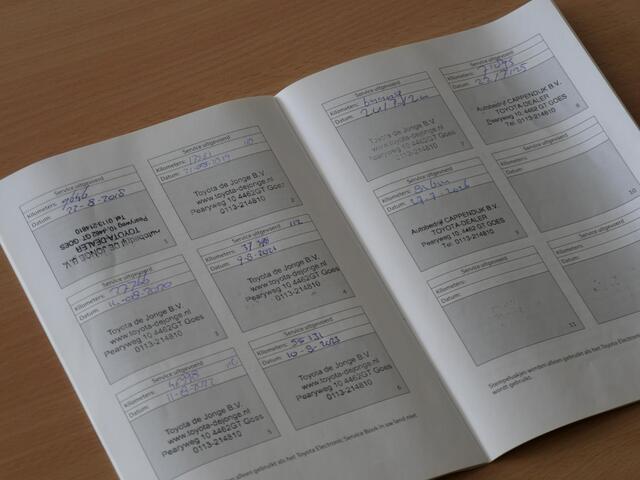 Service uitgevoerd
Kilometers: 9646
Datum: 22-8-2018
Autobedrijf JONGE B.V.
TOYOTA-DEALER
Pearyweg 10, 4462 GT GOES
Tel. 0113-214810
1
Service uitgevoerd
Kilometers:
Datum: 21-08-2019
Toyota de Jonge B.V.
www.toyota-dejonge.nl
Pearyweg 10 4462GT Goes
0113-214810
2
Service uitgevoerd
Kilometers:
Datum: 11-08-2020
Toyota de Jonge B.V.
www.toyota-dejonge.nl
Pearyweg 10 4462GT Goes
0113-214810
3
Service uitgevoerd
Kilometers:
Datum: 9-8-2021
Toyota de Jonge B.V.
www.toyota-dejonge.nl
Pearyweg 10 4462GT Goes
0113-214810
4
Service uitgevoerd
Kilometers:
Datum:
Toyota de Jonge B.V.
www.toyota-dejonge.nl
Pearyweg 10 4462GT Goes
0113-214810
5
Service uitgevoerd
Kilometers: 56 131
Datum: 10-8-2023
Toyota de Jonge B.V.
www.toyota-dejonge.nl
Pearyweg 10 4462GT Goes
0113-214810
6
alleen gebruikt als het Toyota Electronic Service Book in uw land niet
Service uitgevoerd
Kilometers:
Datum:
Toyota de Jonge B.V.
www.toyota-dejonge.nl
Pearyweg 10 4462GT Goes
0113-214810
7
Service uitgevoerd
Kilometers:
Datum:
Autobedrijf CAPPENDIJK B.V.
TOYOTA-DEALER
Pearyweg 10, 4462 GT GOES
Tel. 0113-214810
8
Service uitgevoerd
Kilometers:
Datum:
Autobedrijf CAPPENDIJK B.V.
TOYOTA-DEALER
Pearyweg 10, 4462 GT GOES
Tel. 0113-214810
9
Service uitgevoerd
Kilometers:
Datum:
10
Service uitgevoerd
Kilometers:
Datum:
11
Service uitgevoerd
Kilometers:
Datum:
Stempelhokjes worden alleen gebruikt als het Toyota Electronic
wordt gebruikt.